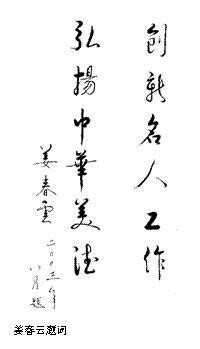 创新名人工作
弘揚中華美德
姜春雲
二〇〇三年
八月題
姜春云题词